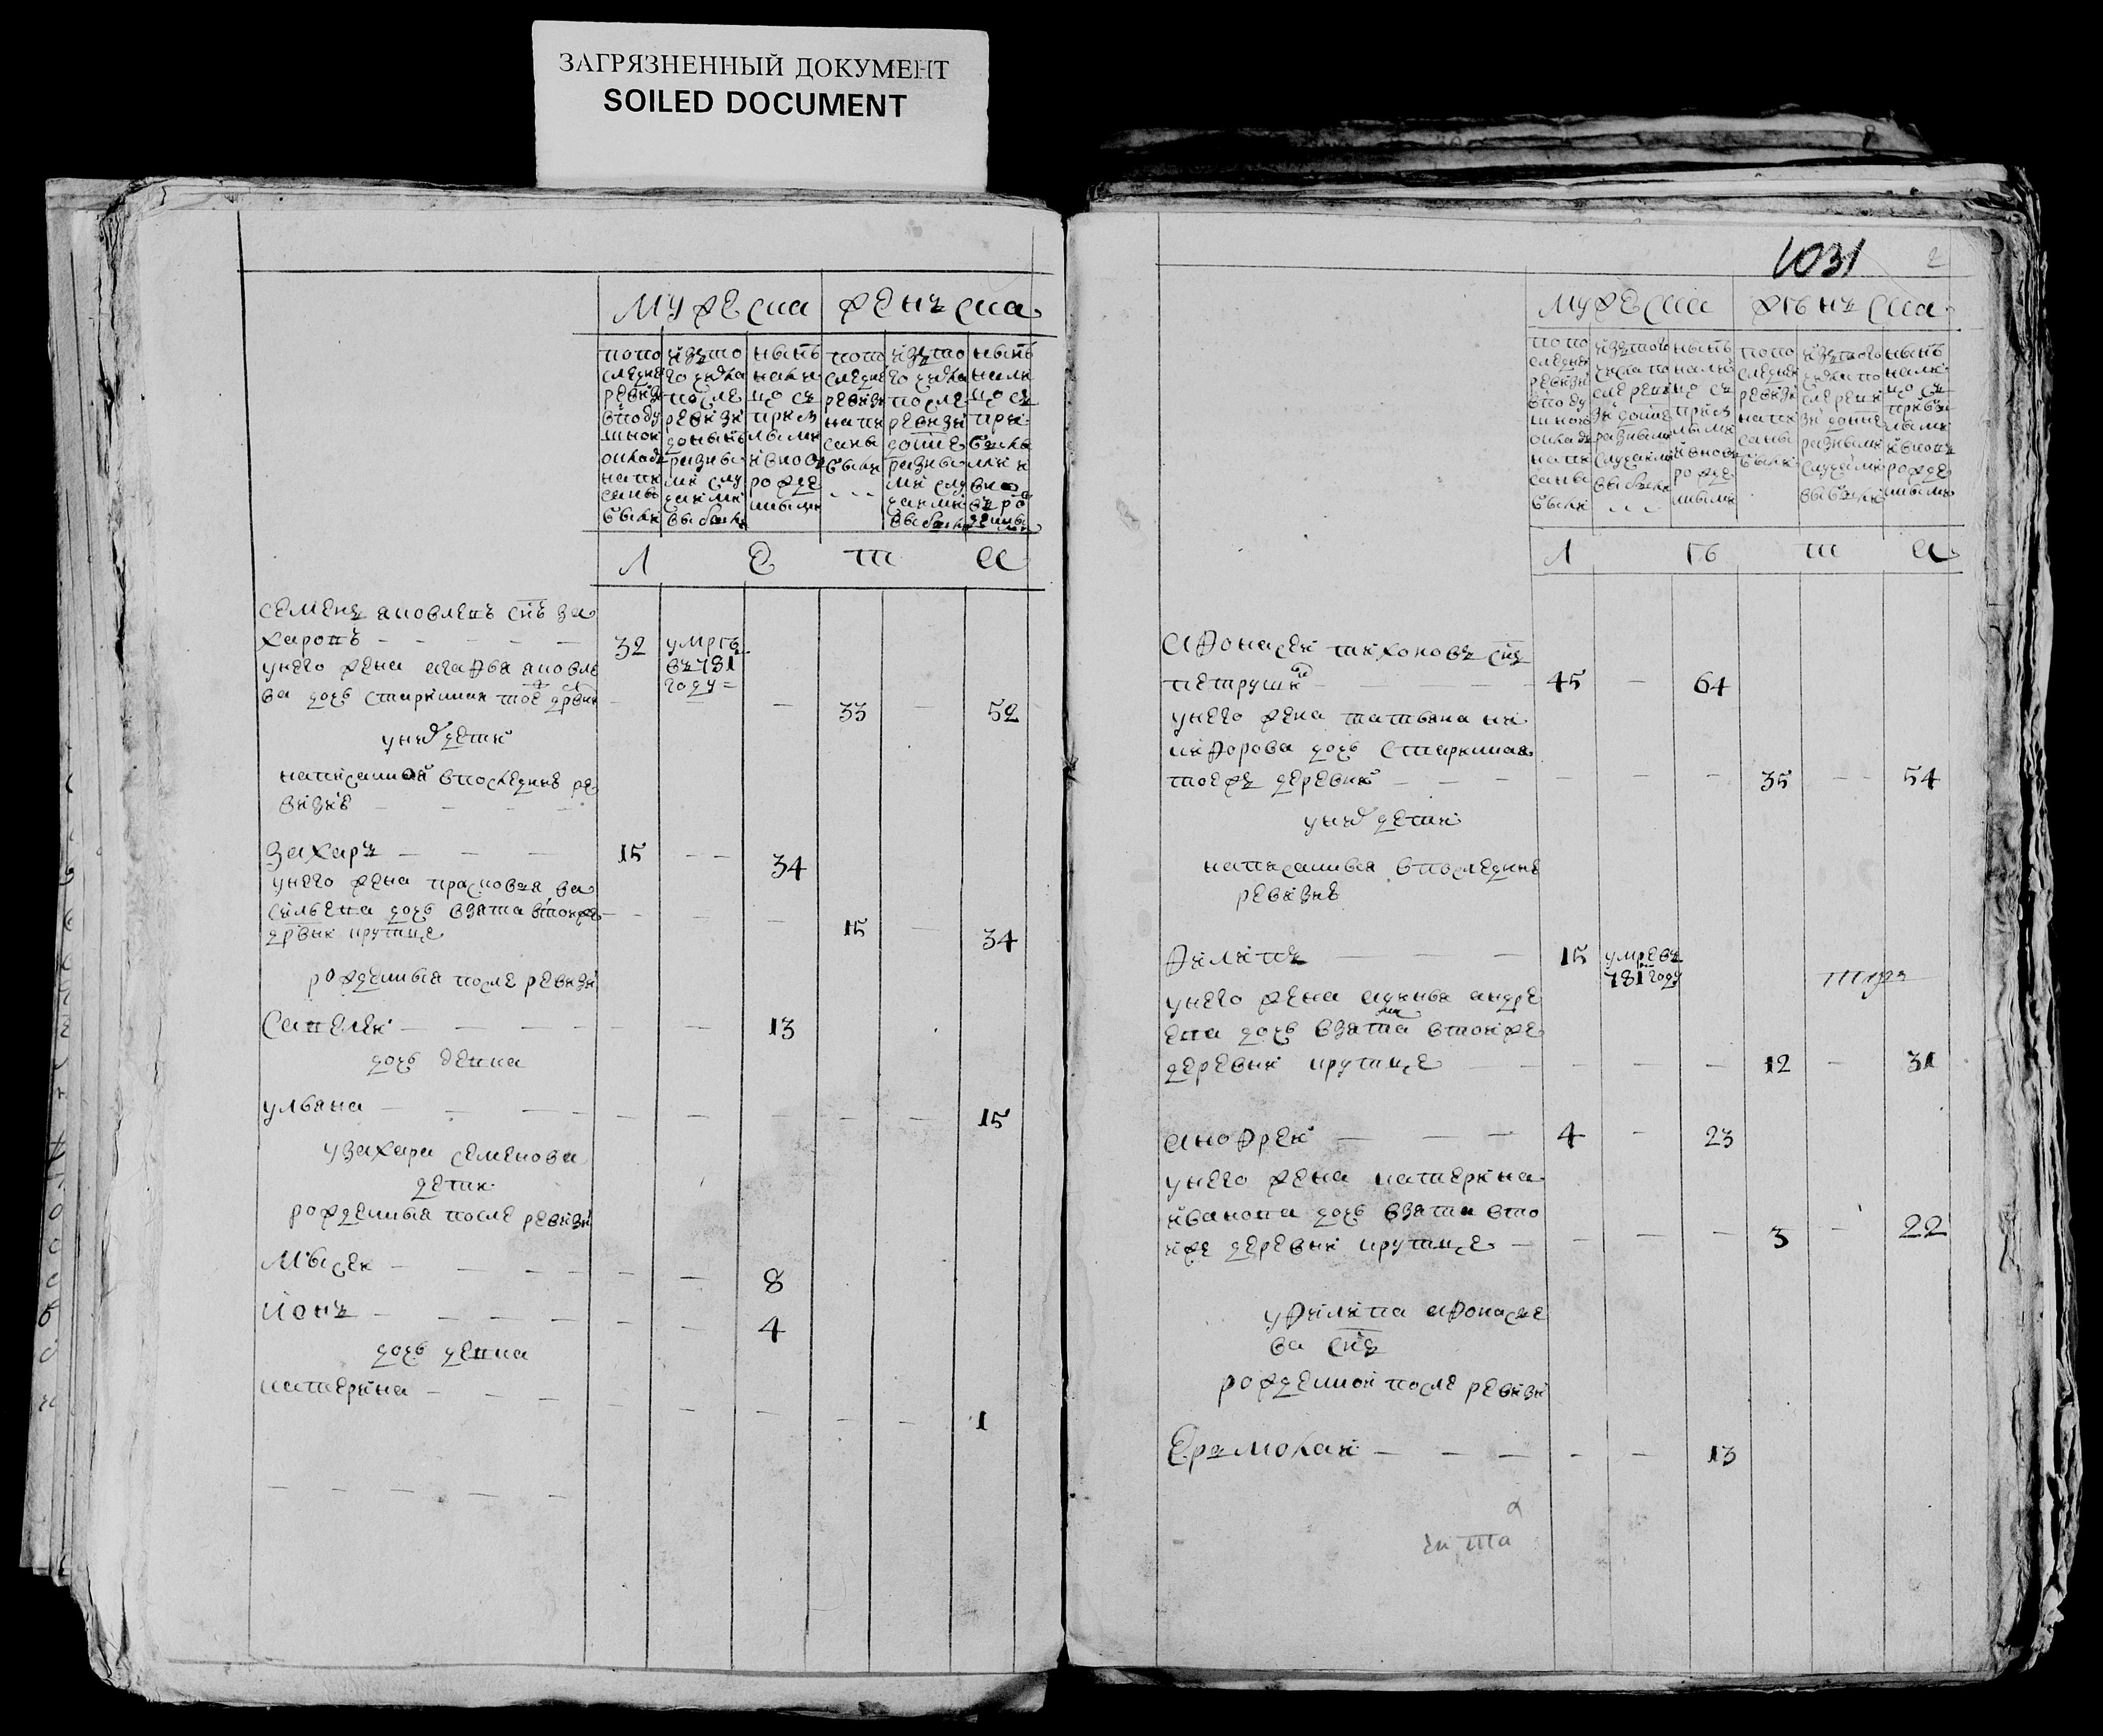 ЗАГРЯЗНЕННЫЙ ДОКУМЕНТ
SOILED DOCUMENT
мужеска женъска
попо
следней
ревизи
вподу
шной
окладъ
напи
саны
были
изъто
го числа
после
ревизи
доныне
разны
ми слу
чаями
выбыли
ныне
нали
цо съ
прибы
лыми
и вновь
рожде
ными
попо
следней
ревизи
напи
саны
были
изъто
го числа
после
ревизи
доныне
разны
ми слу
чаями
выбыло
ныне
нали
цо съ
при
былы
ми и
вно
въ ро
жденны
ми
л е т а
семенъ яковлевъ снъ за
харовъ
32
умре
въ 781
году
унего жена агафья яковле
ва дочь старинная тое дрвни
33 52
уних дети
написанной впоследние ре
визие
захаръ 15 34
унего жена прасковья ва
сильева дочь взята втойже
дрвни крутице
15 34
рожденныя после ревизи
савелей 13
дочь девка
ульяна 15
узахара семенова
дети
рожденныя после ревизи
мысей 8
ионъ 4
дочь девка
катерина 1
1031
2
мужеска женъска
попо
следней
ревизи
вподу
шного
окладъ
напи
саны
были
изътого
числа по
сле реви
зи доныне
разными
случаями
выбыли
ныне
нали
цо съ
прибы
лыми
и вновь
рожде
ными
попо
следней
ревизи
напи
саны
были
изътого
числа по
сле реви
зи доныне
разными
случаями
выбыли
ныне
нали
цо съ
прибы
лыми
и вновь
рожде
ными
л е т а
афонасей тихоновъ снъ
петрушин 45 64
унего жена татьяна ни
кифорова дочь старинная
тоежъ деревни 35 54
уних дети
написанныя впоследние
ревизие
филипъ 15 умре въ
781 году
унего жена андре
ева дочь взята втойже
деревни крутице 12 31
анофрей 4 23
унего жена катерина
иванова дочь взята вто
йже деревни крутице 3 22
уфилипа афонасье
ва снъ
рожденной после ревизи
ермолай 13